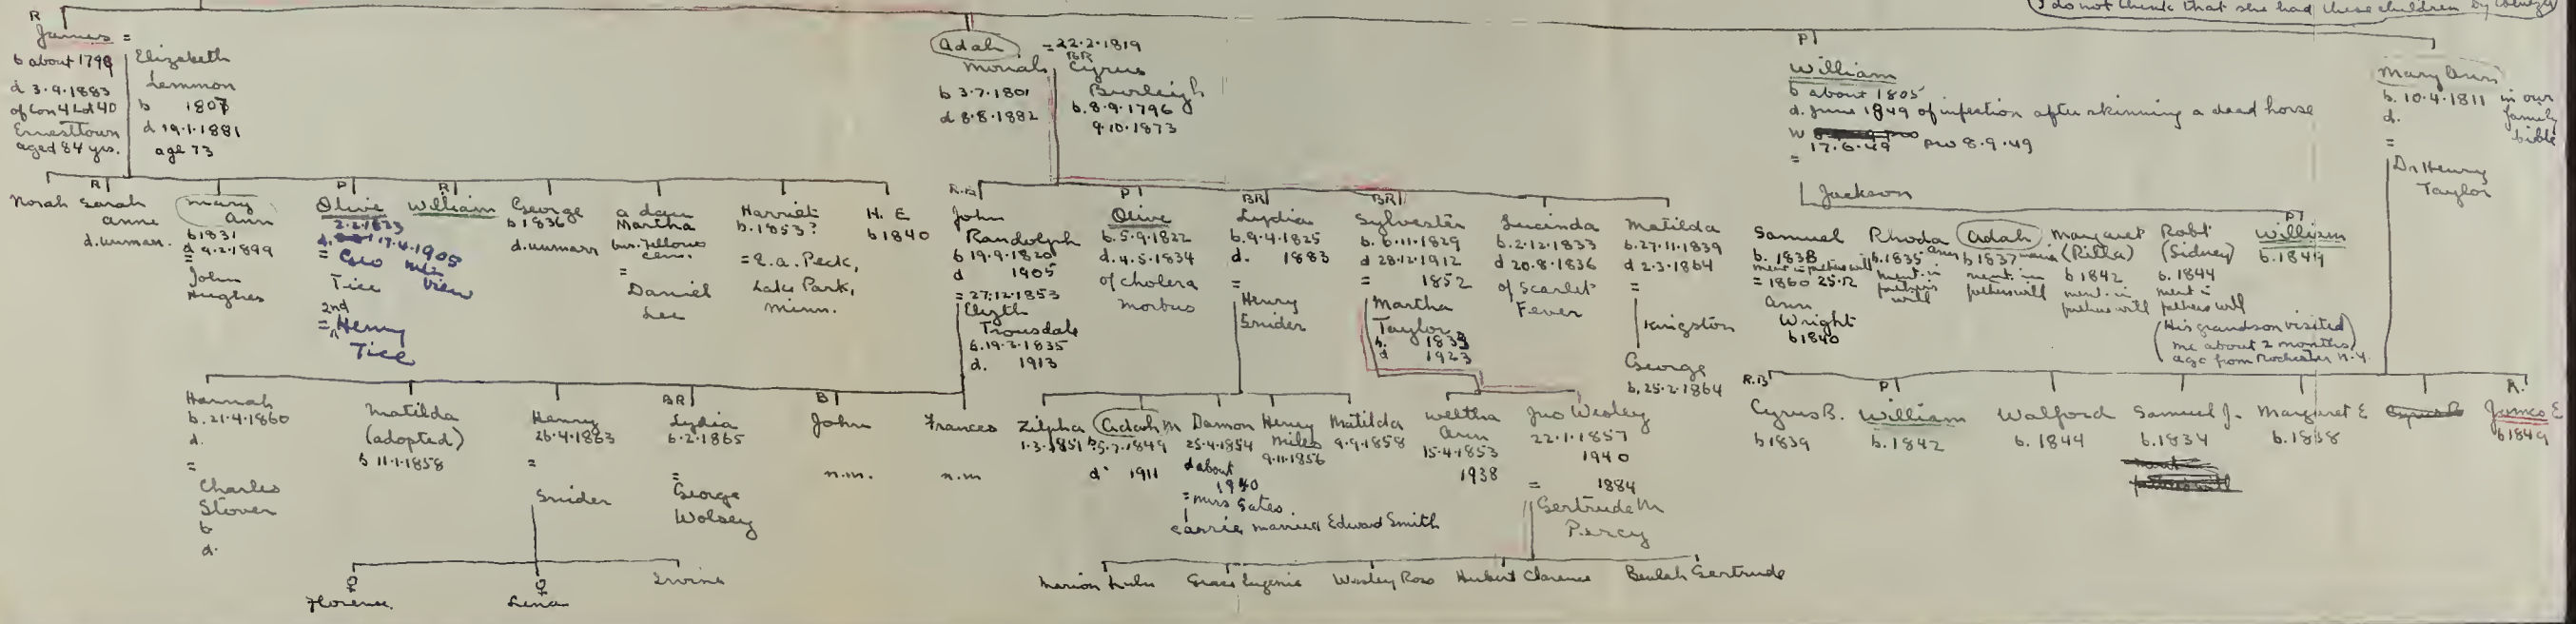 (I do not think that she had these children by
R
James =
b about 1798
d 3.9.1883
of Con 4 Lot 40
Ernesttown
aged 84 yrs.
Elizabeth
Lemmon
b 1807
d 19.1.1881
age 73
Adah
Moriah
b 3.7.1801
d 8.8.1882
= 22.2.1819
BR
Cyrus
Burleigh
b. 8.9.1796
9.10.1873
P
William
b about 1805
d. June 1849 of infection after skinning a dead horse
W
17.6.49 pro 8.9.49
=
Jackson
Mary Ann
b. 10.4.1811 in our
family
bible
d.
=
Dr Henry
Taylor
Norah
R
Sarah
Anne
d. unmarr.
Mary
Ann
b 1831
d 9.2.1899
=
John
Hughes
P
Olive
2.2.1823
d. 17.4.1905
= Geo
Tice
Mt.
View
2nd
= Henry
Tice
R
William
George
b 1836
d. unmarr
a dau
Martha
=
Daniel
Lee
Harriet
b. 1853?
= E. A. Peck,
Lake Park,
Minn.
H. E
b 1840
R.B
John
Randolph
b 19.9.1820
d 1905
= 27.12.1853
Elizth
Trousdale
b. 19.3.1835
d. 1913
P
Olive
b. 5.9.1822
d. 4.5.1834
of cholera
morbus
BR
Lydia
b. 9.4.1825
d. 1883
=
Henry
Snider
BR
Sylvester
b. 6.11.1829
d 28.12.1912
= 1852
Martha
Taylor
b. 1833
d 1923
Lucinda
b. 2.12.1833
d 20.8.1836
of Scarlet
Fever
Matilda
b. 27.11.1839
d 2.3.1864
=
Kingston
George
b. 25.2.1864
Samuel
b. 1838
ment in fathers will
= 1860 25.12
Ann
Wright
b 1840
Rhoda
Ann
b. 1835
ment. in
fathers
will
Adah
Maria
b 1837
ment. in
fathers will
Margaret
(Rilla)
b 1842
ment. in
fathers will
Robt
(Sidney)
b. 1844
ment in
fathers will
(His grandson visited
me about 2 months
ago from Rochester N.Y.
P
William
b. 1849
Hannah
b. 21.4.1860
d.
=
Charles
Stover
b
d.
Matilda
(adopted)
b 11.1.1858
Henry
26.4.1863
=
Snider
BR
Lydia
6.2.1865
=
George
Wolsey
B
John
n.m.
Frances
n.m
Zilpha
1.3.1851
Adah M
b 5.7.1849
d 1911
Damon
25.4.1854
d about
1940
= Mrs Gates
Carrie married Edward Smith
Henry
Miles
9.11.1856
Matilda
9.9.1858
Weltha
Ann
15.4.1853
1938
Jno Wesley
22.1.1857
1940
= 1884
Gertrude M
Percy
R.B
Cyrus B.
b 1839
P
William
b. 1842
Walford
b. 1844
Samuel J.
b. 1834
Margaret E
b. 1838
R.
James E
b 1849
♀
Florence.
♀
Lena
Irvine
Marion Lulu
Grace Eugenie
Wesley Ross
Hubert Clarence
Beulah Gertrude